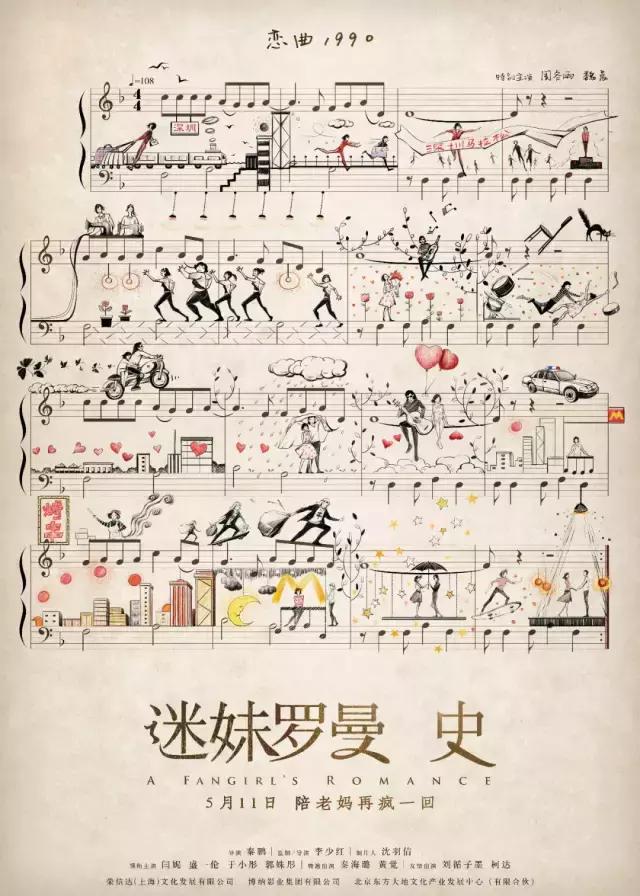 恋曲1990
特别主演 周冬雨 魏晨
♩=108
4
4
深圳
深圳马拉松
M
烤串
M
迷妹罗曼 史
A FANGIRL'S ROMANCE
5月11日 陪老妈再疯一回
导演 秦鹏 | 监制/导演 李少红 | 制片人 沈羽信
领衔主演 闫妮 盛一伦 于小彤 郭姝彤 | 特邀出演 秦海璐 黄觉 | 友情出演 刘循子墨 柯达
荣信达(上海)文化发展有限公司 博纳影业集团有限公司 北京东方大地文化产业发展中心(有限合伙)